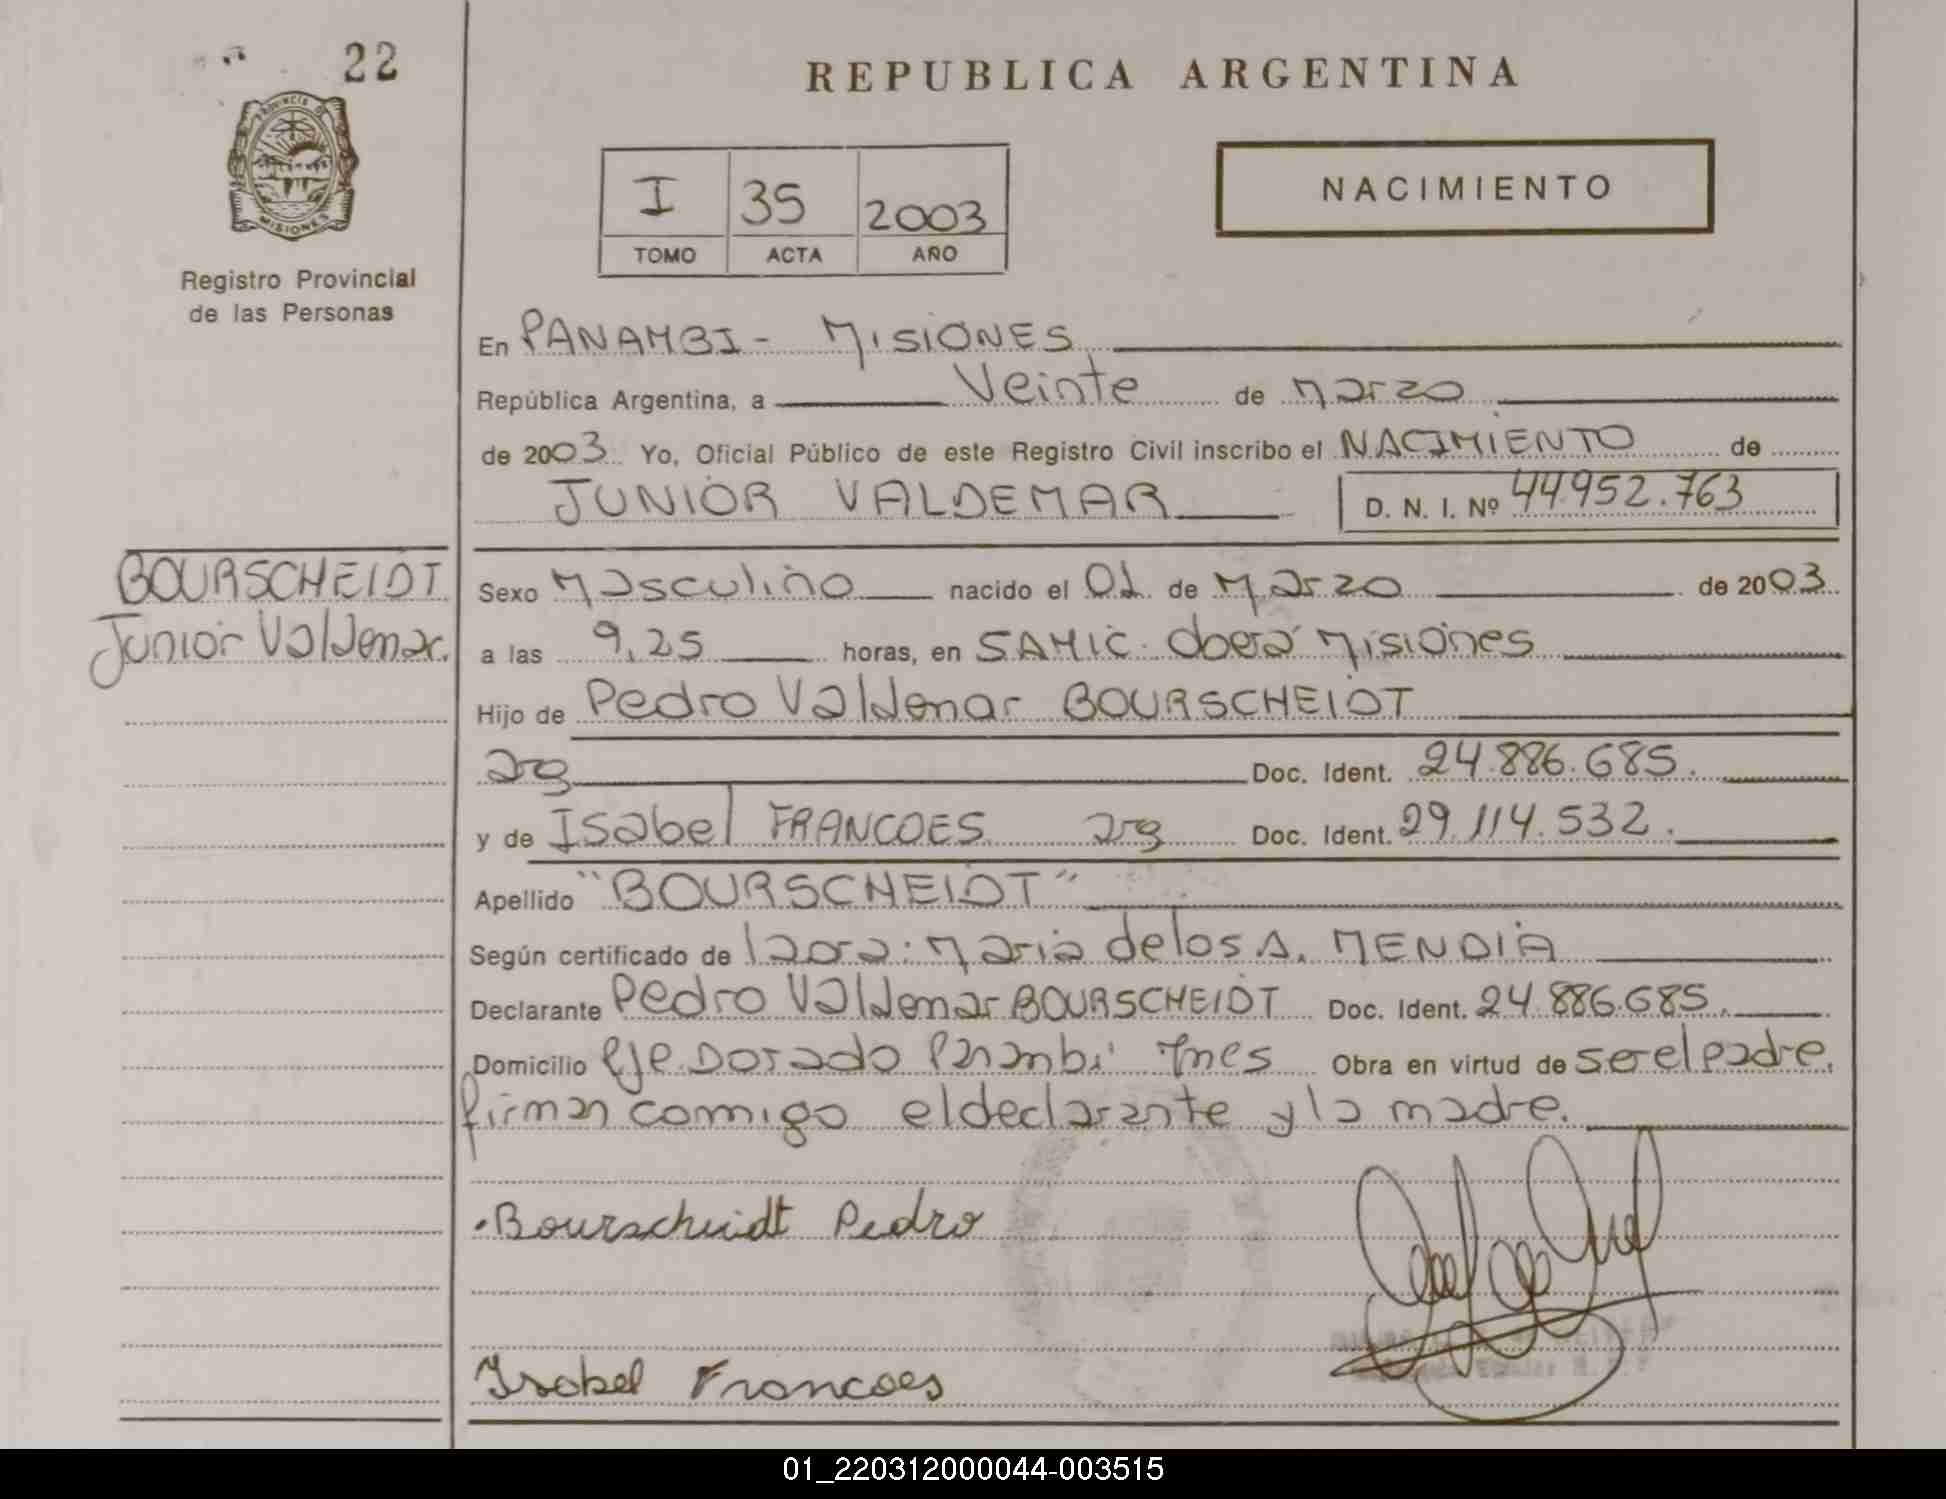 22
PROVINCIA DE
MISIONES
Registro Provincial
de las Personas
REPUBLICA ARGENTINA
I 35 2003
TOMO ACTA AÑO
NACIMIENTO
En PANAMBI - MISIONES
República Argentina, a Veinte de Marzo
de 2003 Yo, Oficial Público de este Registro Civil inscribo el NACIMIENTO de
JUNIOR VALDEMAR D. N. I. Nº 44.952.763
BOURSCHEIDT
Junior Valdemar.
Sexo Masculino nacido el 01 de Marzo de 2003
a las 9,25 horas, en SAMIC. Oberá Misiones
Hijo de Pedro Valdemar BOURSCHEIDT
arg Doc. Ident. 24.886.685.
y de Isabel FRANCOES arg Doc. Ident. 29.114.532.
Apellido "BOURSCHEIDT"
Según certificado de la ora: Maria de los A. MENDIA
Declarante Pedro Valdemar BOURSCHEIDT Doc. Ident. 24.886.685.
Domicilio Eje Dorado Panambi Mnes Obra en virtud de ser el padre.
firman comigo el declarante y la madre.
Bourscheidt Pedro
Isabel Francoes
01_220312000044-003515